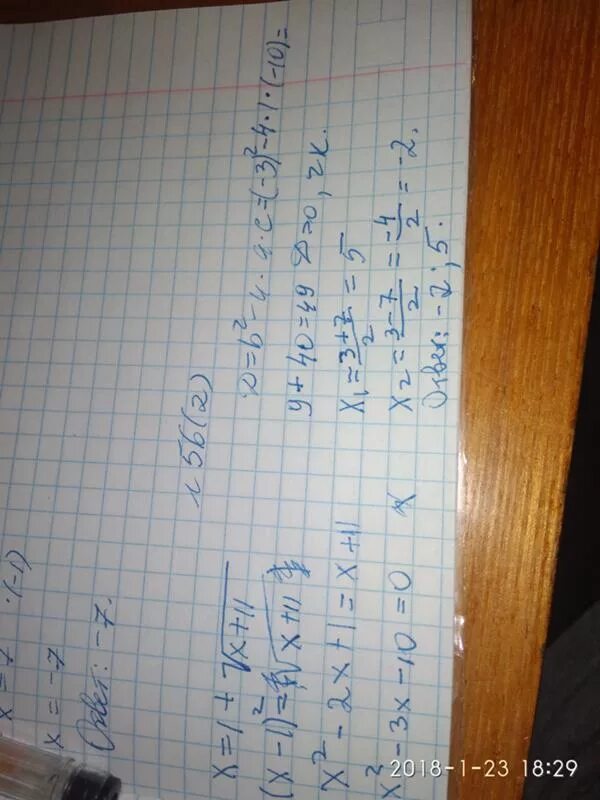 x = 7 · (-1)
x = -7
Ответ: -7.
№56(2)
x = 1 + √x+11
(x-1)² = √x+11
x² - 2x + 1 = x + 11
x² - 3x - 10 = 0 x
D = b² - 4 · a · c = (-3)² - 4 · 1 · (-10) =
9 + 40 = 49 D>0, 2к.
x₁ = 3+7/2 = 5
x₂ = 3-7/2 = -4/2 = -2.
Ответ: -2; 5.
2018-1-23 18:29